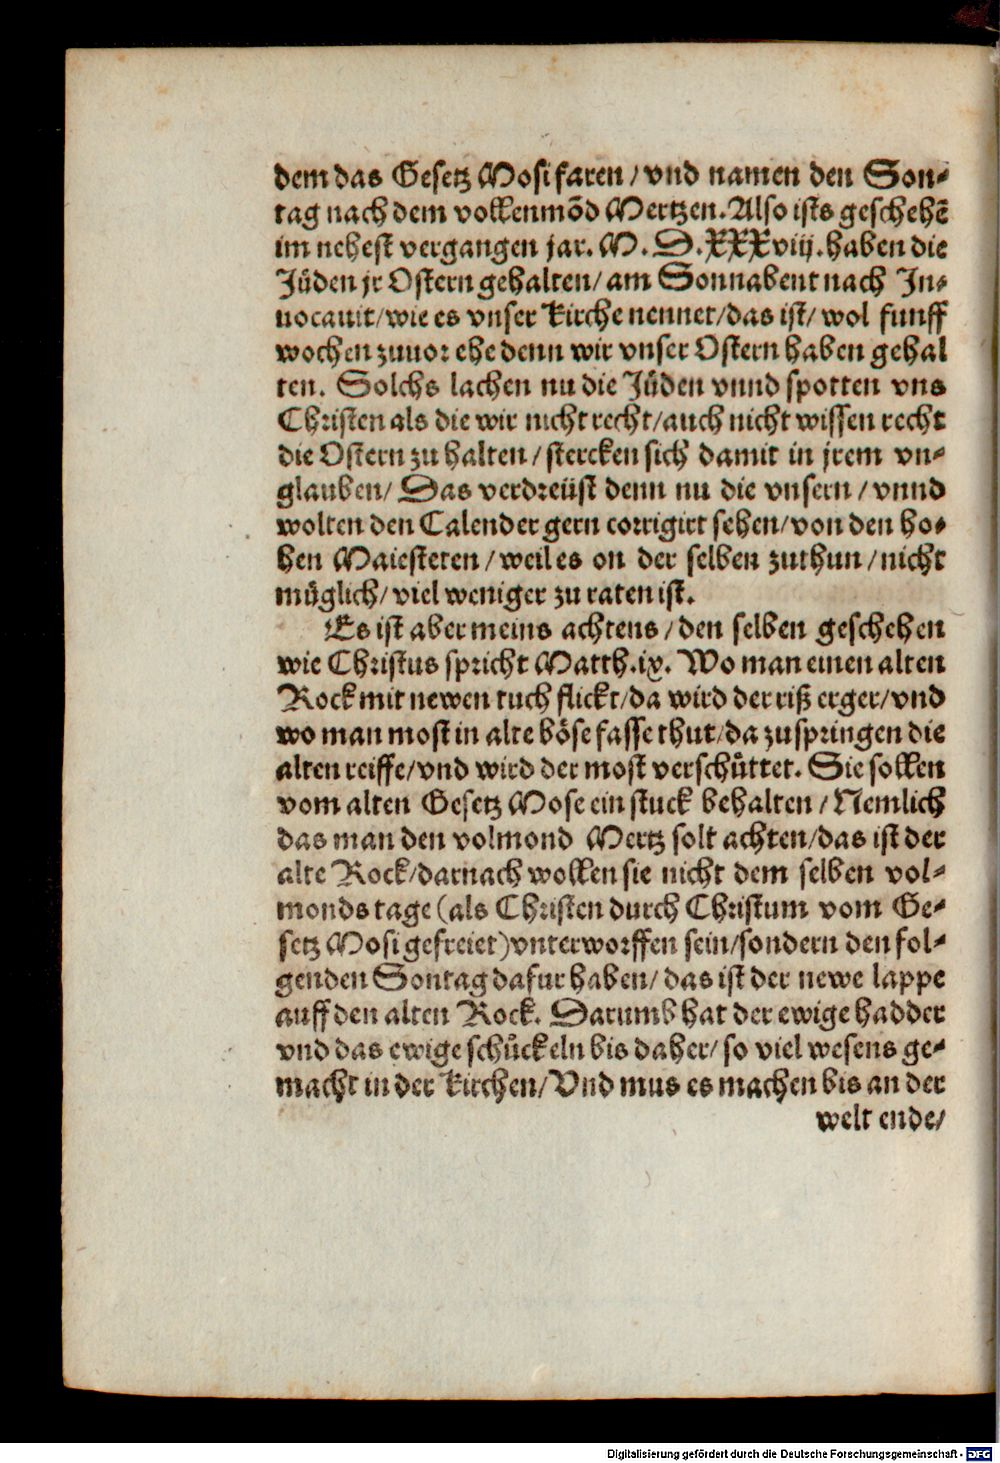 dem das Gesetz Mosi faren / vnd namen den Son⸗
tag nach dem vollenmõd Mertzen. Also ists geschehẽ
im nehest vergangen jar. M. D. XXXviij. haben die
Jüden jr Ostern gehalten / am Sonnabent nach In⸗
uocauit / wie es vnser Kirche nennet / das ist / wol funff
wochen zuuor ehe denn wir vnser Ostern haben gehal
ten. Solchs lachen nu die Jüden vnnd spotten vns
Christen als die wir nicht recht / auch nicht wissen recht
die Ostern zu halten / stercken sich damit in jrem vn⸗
glauben / Das verdreüst denn nu die vnsern / vnnd
wolten den Calender gern corrigirt sehen / von den ho⸗
hen Maiesteten / weil es on der selben zuthun / nicht
müglich / viel weniger zu raten ist.
Es ist aber meins achtens / den selben geschehen
wie Christus spricht Matth. ix. Wo man einen alten
Rock mit newen tuch flickt / da wird der riß erger / vnd
wo man most in alte böse fasse thut / da zuspringen die
alten reiffe / vnd wird der most verschüttet. Sie sollen
vom alten Gesetz Mose ein stuck behalten / Nemlich
das man den volmond Mertz solt achten / das ist der
alte Rock / darnach wollen sie nicht dem selben vol⸗
monds tage (als Christen durch Christum vom Ge⸗
setz Mosi gefreiet) vnterworffen sein / sondern den fol⸗
genden Sontag dafur haben / das ist der newe lappe
auff den alten Rock. Darumb hat der ewige hadder
vnd das ewige schückeln bis daher / so viel wesens ge⸗
macht in der Kirchen / Vnd mus es machen bis an der
welt ende /
Digitalisierung gefördert durch die Deutsche Forschungsgemeinschaft - DFG